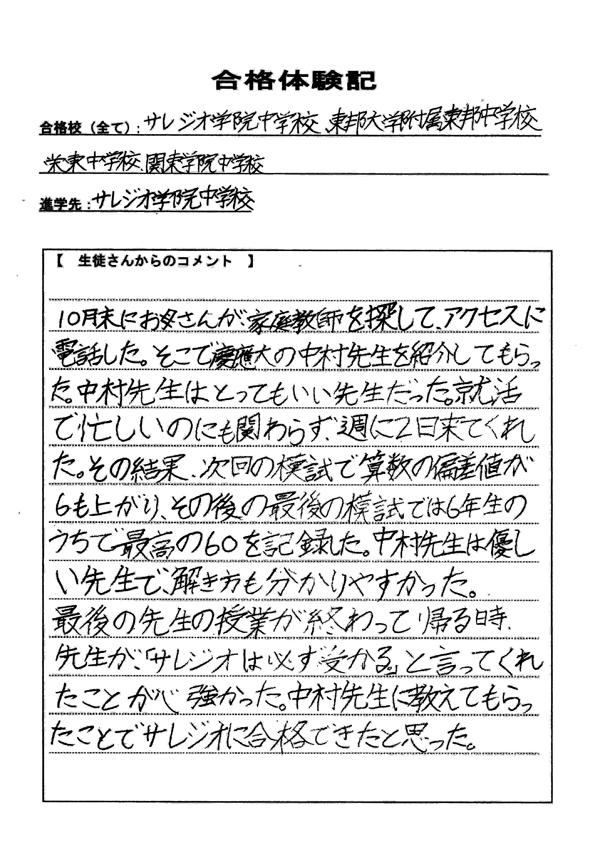 合格体験記
合格校（全て）：サレジオ学院中学校、東邦大学附属東邦中学校
栄東中学校、関東学院中学校
進学先：サレジオ学院中学校
【 生徒さんからのコメント 】
10月末にお母さんが、家庭教師を探して、アクセスに
電話した。そこで慶應大の中村先生を紹介してもらっ
た。中村先生はとってもいい先生だった。就活
で忙しいのにも関わらず、週に2日来てくれ
た。その結果、次回の模試で算数の偏差値が
6も上がり、その後の最後の模試では6年生の
うちで最高の60を記録した。中村先生は優し
い先生で、解き方も分かりやすかった。
最後の先生の授業が終わって帰る時、
先生が、「サレジオは必ず受かる。」と言ってくれ
たことが心強かった。中村先生に教えてもらっ
たことでサレジオに合格できたと思った。